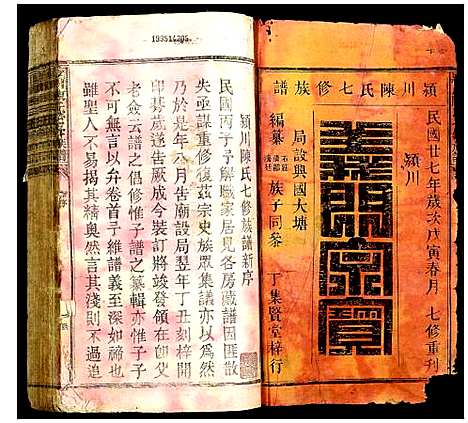 19351A205
潁川陳氏七修族譜
民國廿七年歲次戊寅春月 七修重刊
潁川
義門宗寶
局設興國大塘
編纂 族子同參
丁集賢堂梓行
潁川陳氏七修族譜新序
民國丙子予解職家居見各房藏譜因匪散
失亟謀重修復茲宗史族眾集議亦以為然
乃於是年八月告廟設局翌年丁丑刻梓開
印朞歲遂告厥成今裝訂將竣發領在即叟
老僉云譜之倡修惟子譜之纂輯亦惟子子
不可無言以弁卷首予維譜義至深如諦也
雖聖人不易揭其精奧然言其淺則不過追